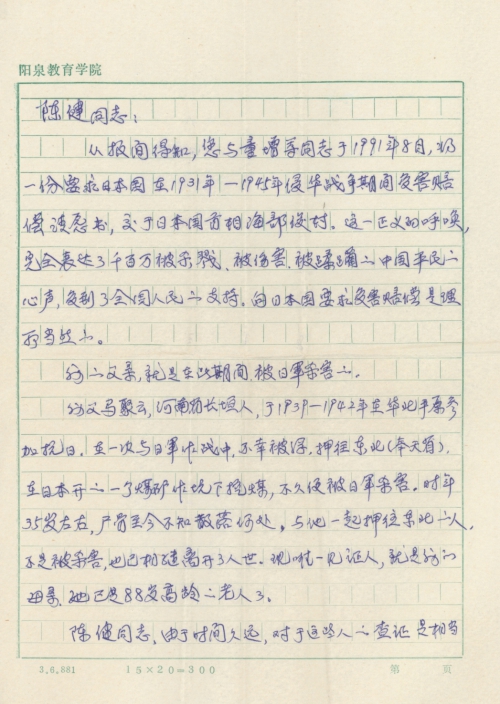 阳泉教育学院
陈健同志：
从报间得知，您与童增等同志于1991年8月，将
一份要求日本国在1931年—1945年侵华战争期间受害赔
偿请愿书，交于日本国首相海部俊树。这一正义的呼唤，
完全表达了千百万被杀戮、被伤害、被蹂躏的中国平民的
心声，受到了全国人民的支持。向日本国要求受害赔偿是理
所当然的。
我的父亲，就是在此期间被日军杀害的。
我父马聚，河南省长垣人，于1939—1942年在华北平原参
加抗日。在一次与日军作战中，不幸被俘，押往东北(奉天省)，
在日本开的一个煤矿作坑下挖煤，不久便被日军杀害。时年
35岁左右，尸骨至今不知散落何处。与他一起押往东北的人，
不是被杀害，也已相继离开了人世。现唯一见证人，就是我的
母亲，她已是88岁高龄的老人了。
陈健同志，由于时间久远，对于这些人的查证是相当
3.6.881 15×20=300 第 页